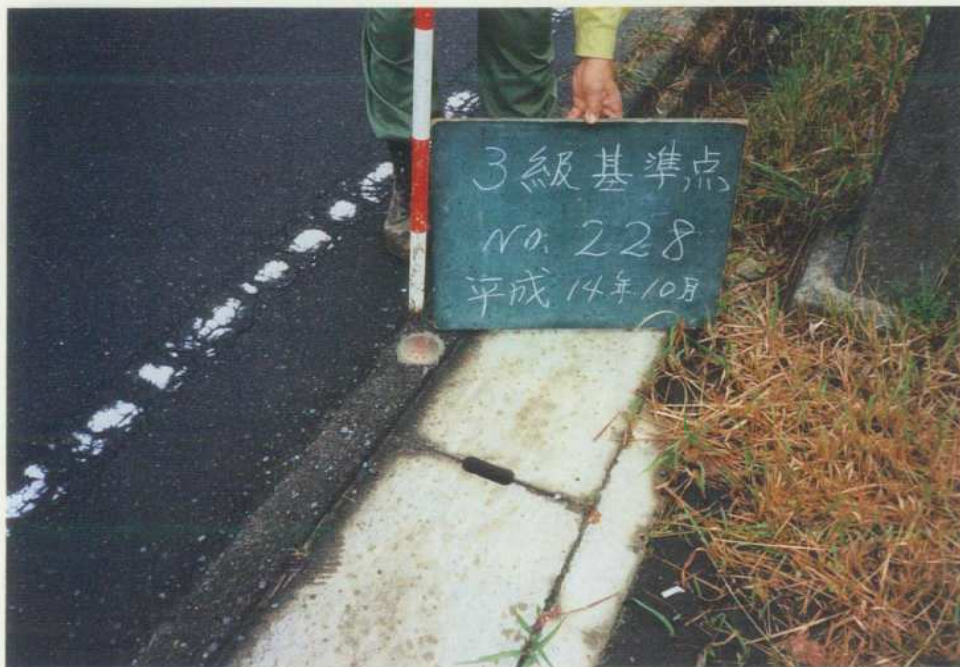 3級基準点
No. 228
平成14年10月